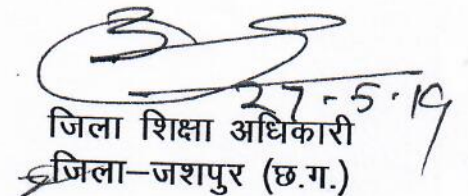 27-5-19
जिला शिक्षा अधिकारी
जिला–जशपुर (छ.ग.)